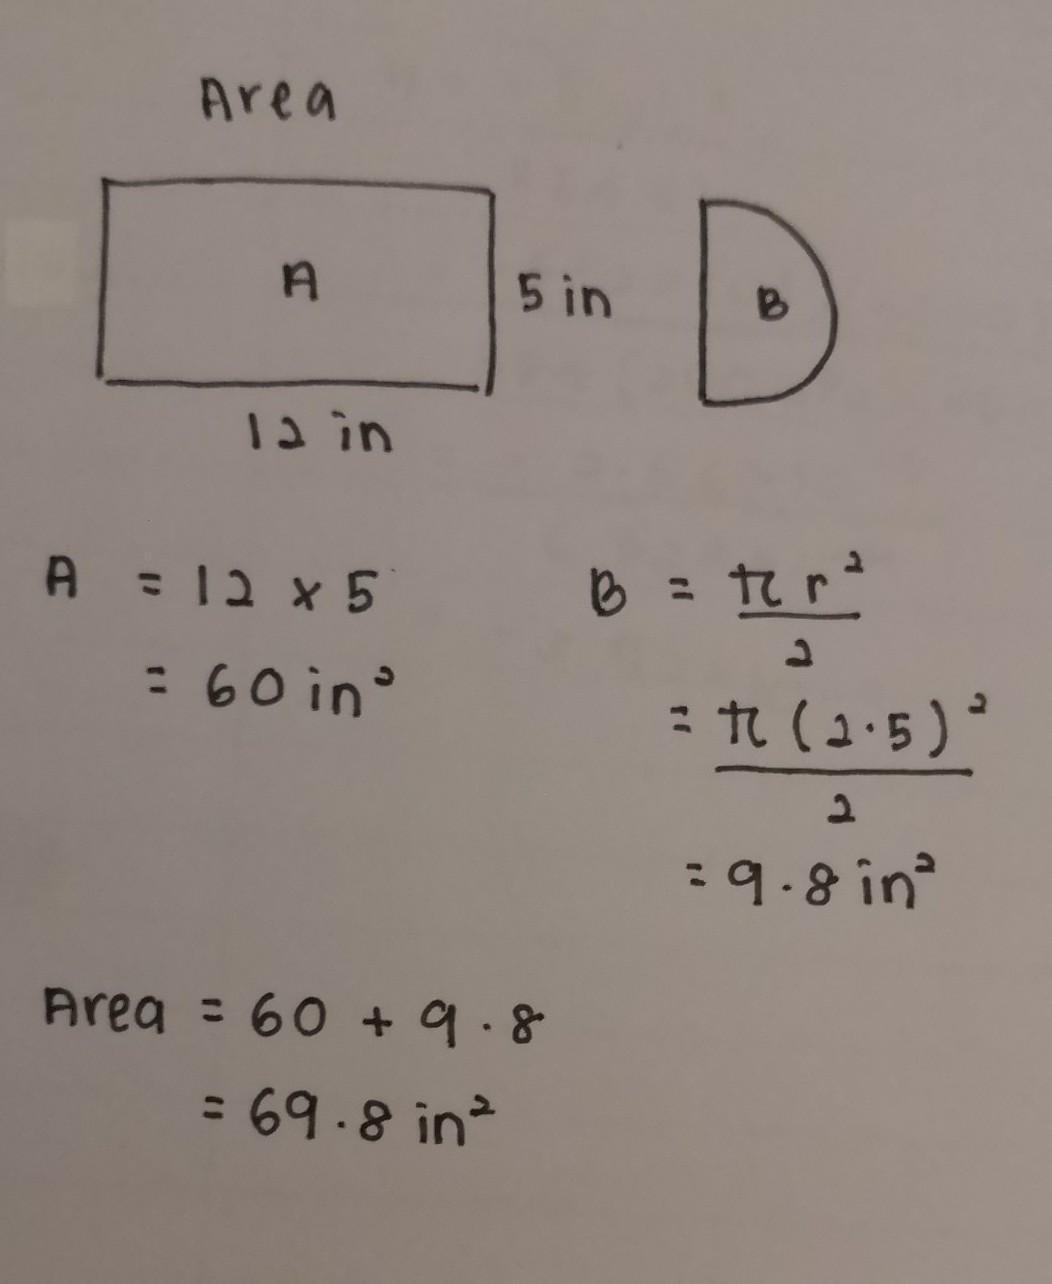 Area
A
5 in
B
12 in
A = 12 x 5
= 60 in²
B = πr²
2
= π(2.5)²
2
= 9.8 in²
Area = 60 + 9.8
= 69.8 in²